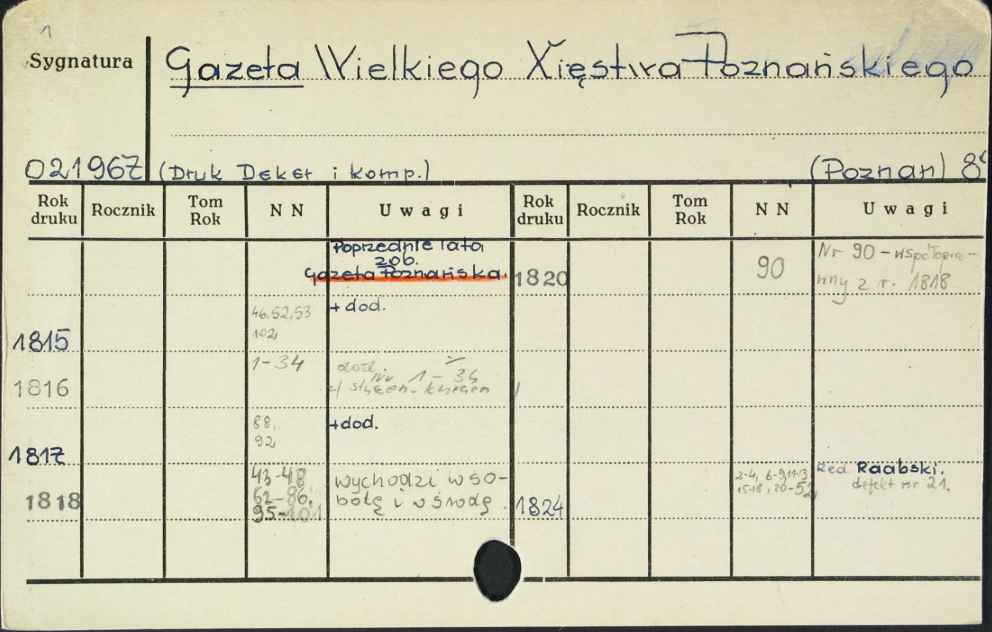 1
Sygnatura
Gazeta Wielkiego Xięstwa Poznańskiego
021967 (Druk Deker i komp.) (Poznań) 8°
Rok druku Rocznik Tom Rok NN Uwagi Rok druku Rocznik Tom Rok NN Uwagi
Poprzednie lata
zob.
Gazeta Poznańska.
1820 90 Nr 90 - współopra-
wny z r. 1818
1815 46, 52, 53
102,
+ dod.
1816 1-34
dod.
Nr 1-34
1817 88,
92
+dod.
1818 43-48,
62-86,
95-101
wychodzi w so-
botę i w środę
1824 2-4, 6-9,
15-18, 20-52
Red Raabski.
defekt nr 21.